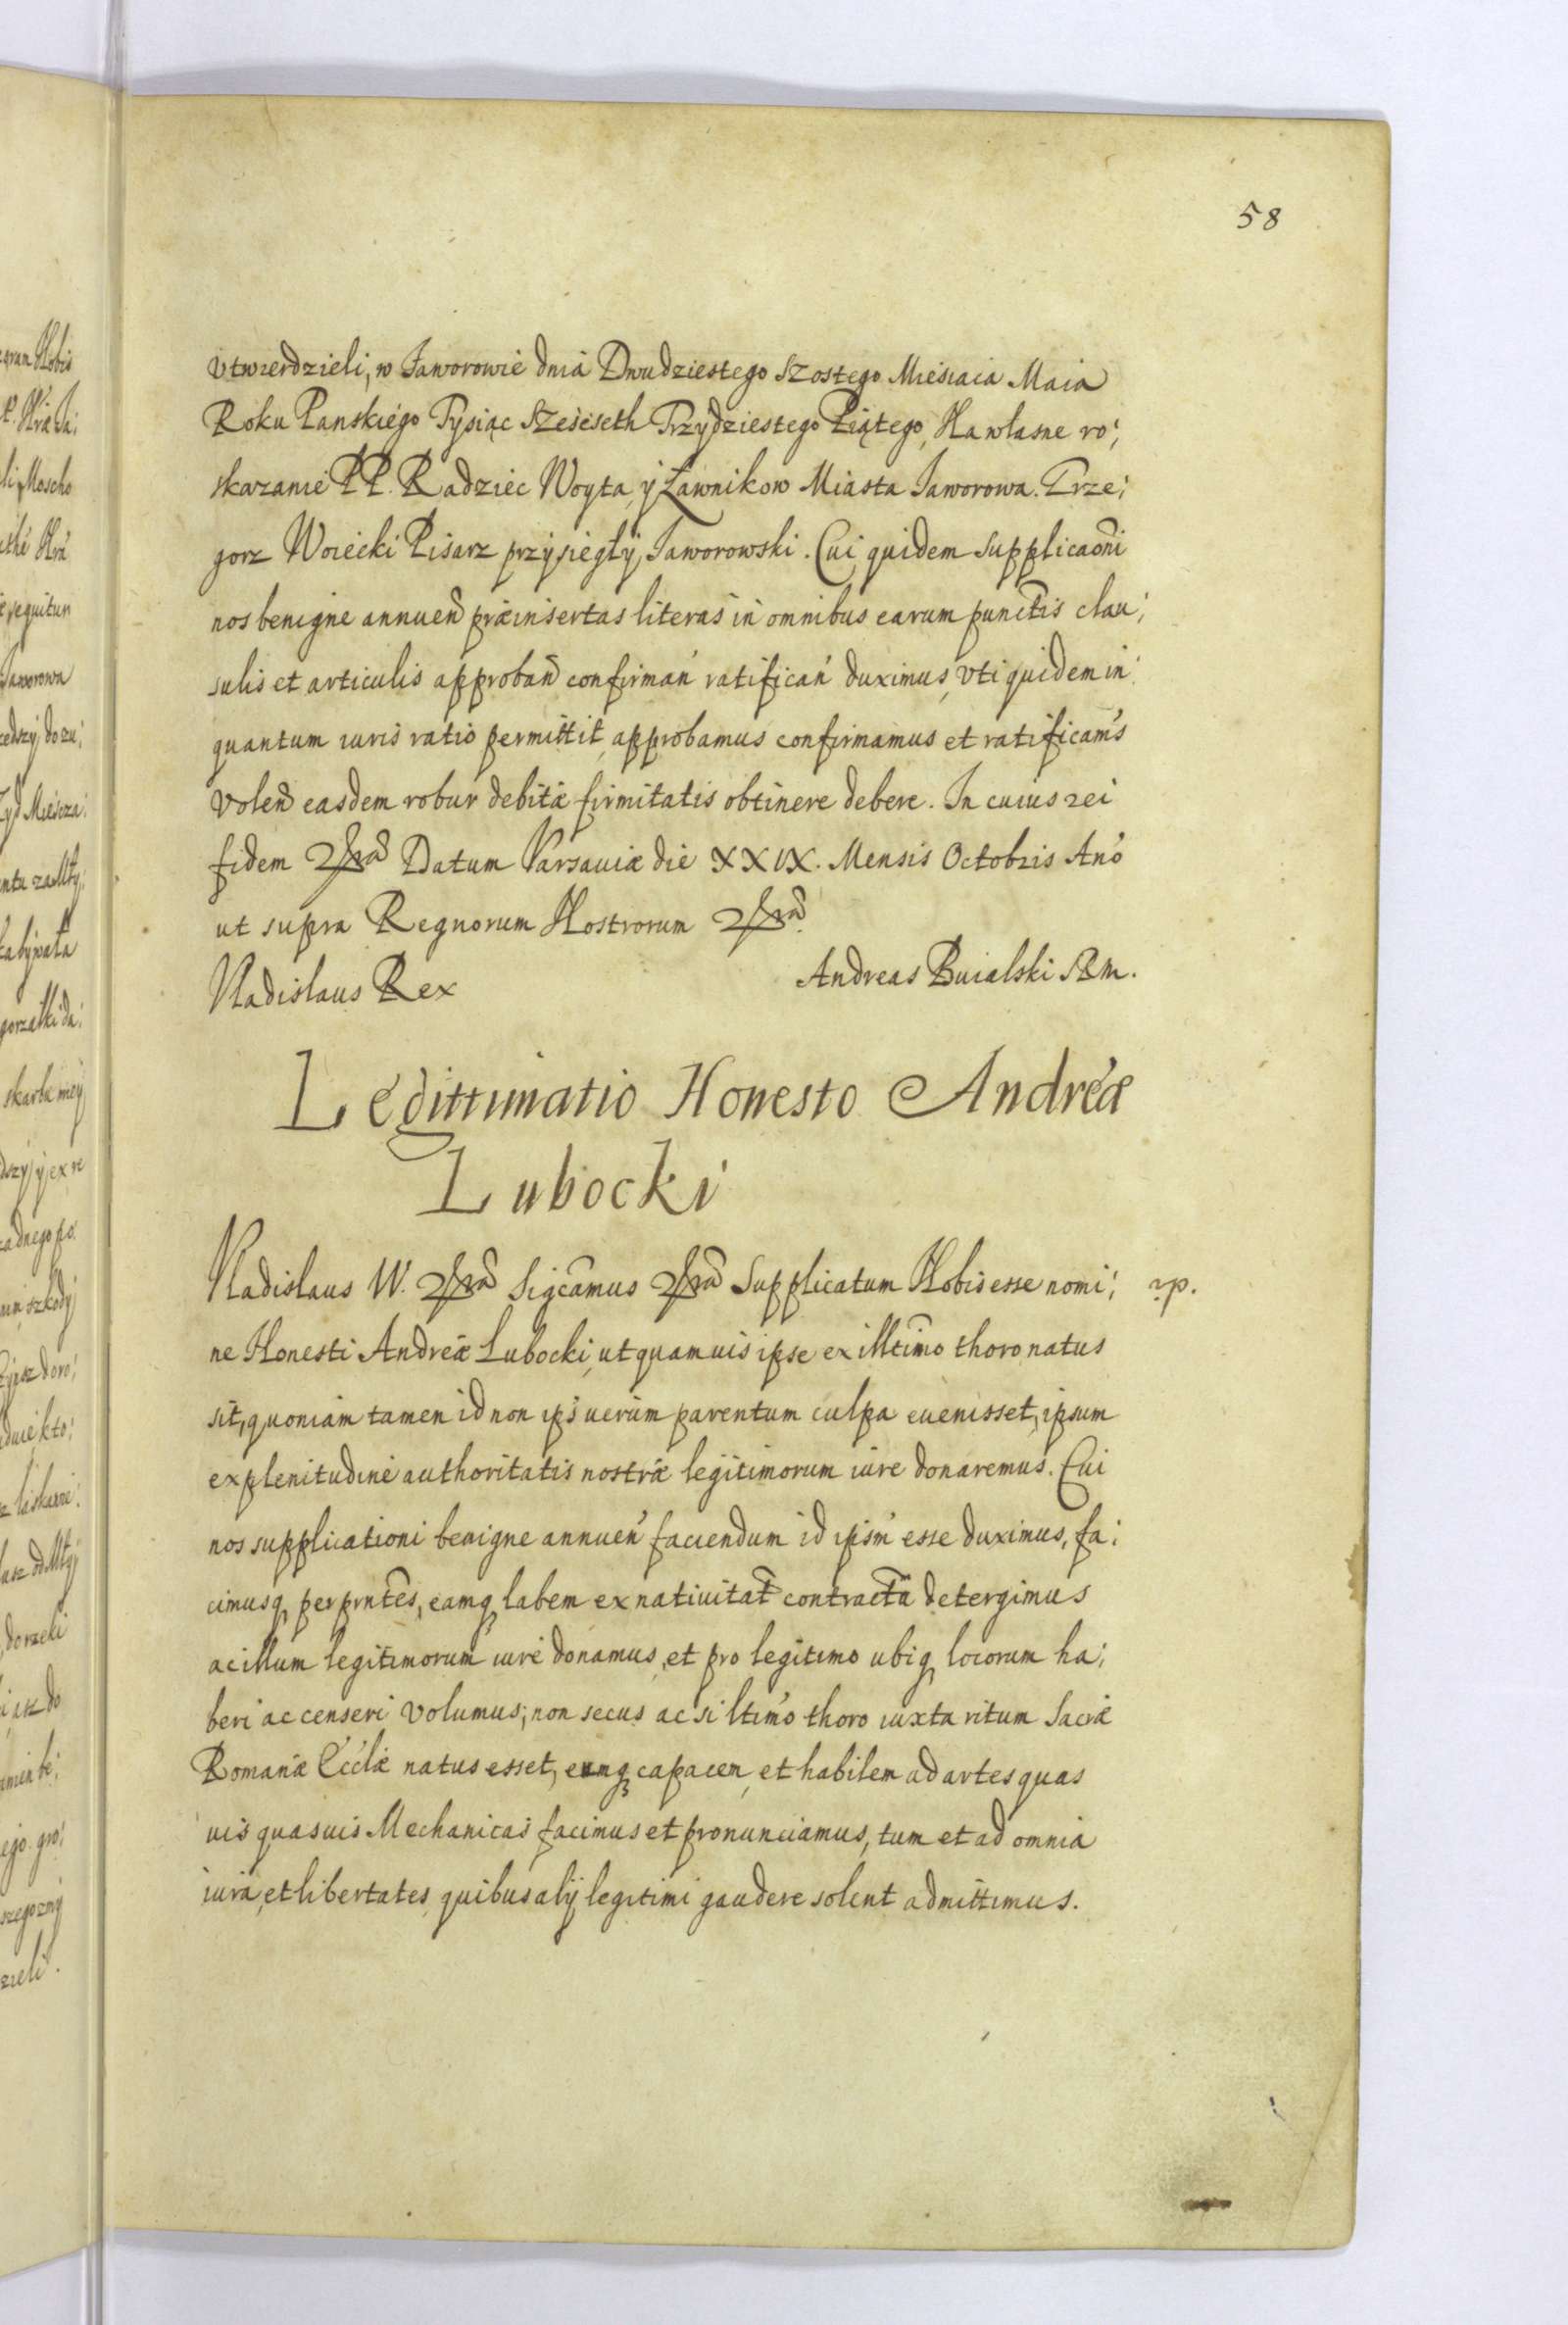 58
Vtwierdzieli, w Jaworowie dnia Dwudziestego Szostego Miesiaca Maia
Roku Panskiego Tysiąc Szescseth Trzydziestego Piątego, Na własne ro;
skazanie PP. Radziec Woyta, y Ławnikow Miasta Jaworowa. Grze;
gorz Woiecki Pisarz przysięgły Jaworowski. Cui quidem supplicaõni
nos benigne annueñ præinsertas literas in omnibus earum punctis clau;
sulis et articulis approbañ confirmañ ratificañ duximus, vti quidem in
quantum iuris ratio permittit, approbamus confirmamus et ratificam's
Voleñ easdem robur debitæ firmitatis obtinere debere. In cuius rei
fidem Datum Varsaviæ die XXIX. Mensis Octobris Año
ut supra Regnorum Nostrorum
Vladislaus Rex Andreas Buialski SRM.
Legittimatio Honesto Andreæ
Lubocki
Vladislaus IV. Sigcamus Supplicatum Nobis esse nomi;
ne Honesti Andreæ Lubocki, ut quamuis ipse ex illtimo thoro natus
sit, quoniam tamen id non ips's uerùm parentum culpa euenisset, ipsum
ex plenitudine authoritatis nostræ legitimorum iure donaremus. Cui
nos supplicationi benigne annueñ faciendum id ipsm̃ esse duximus, fa;
cimusq, per pñtes, eamq labem ex nativitat̃ contractã detergimus
ac illum legitimorum iure donamus, et pro legitimo ubiq locorum ha;
beri ac censeri volumus; non secus ac si ltimo thoro iuxta ritum Sacræ
Romanæ Ecclæ natus esset, eumq capacem, et habilem ad artes quas
uis quasuis Mechanicas facimus et pronunciamus, tum et ad omnia
iura, et libertates quibus alij legitimi gaudere solent admittimus.